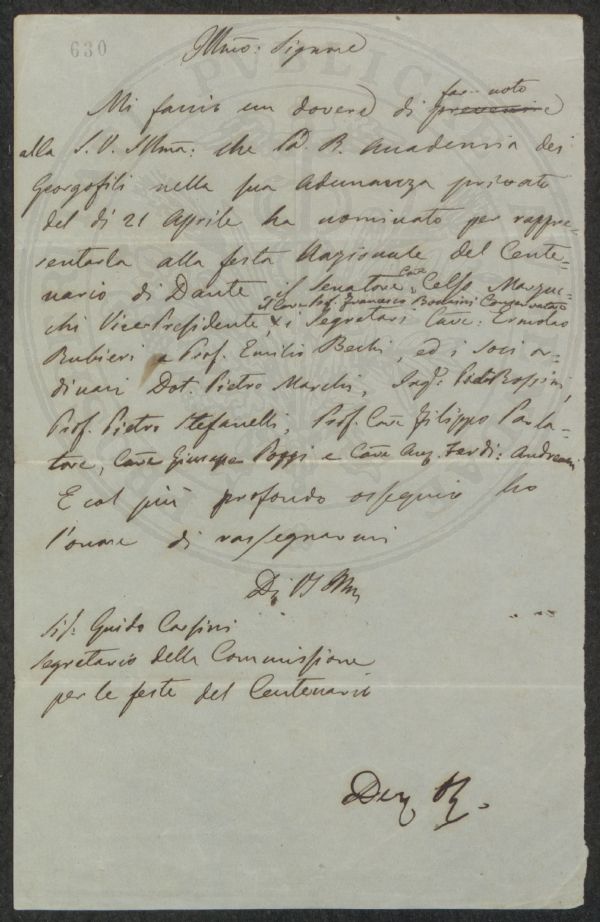 630
Illmo: Signore
Mi faccio un dovere di prevenire far noto
alla S. V. Illma: che la R. Accademia dei
Georgofili nella sua Adunanza privata
del dì 21 Aprile ha nominato per rappre-
sentarla alla festa Nazionale del Cente-
nario di Dante il Senatore Cav. Celso Marzuc-
chi Vice-Presidente, il Cav. Prof. Francesco Bonaini Conservatore
i Segretari Cav: Ermolao
Rubieri e Prof. Emilio Bechi, ed i soci or-
dinari Dot. Pietro Marchi, Ingr: Rossini,
Prof. Pietro Stefanelli, Prof. Cave Filippo Parla-
tore, Cave Giuseppe Poggi e Cave
E col più profondo ossequio ho
l'onore di rassegnarmi
Di VS Illma
Sig: Guido Corsini
Segretario della Commissione
per le feste del Centenario